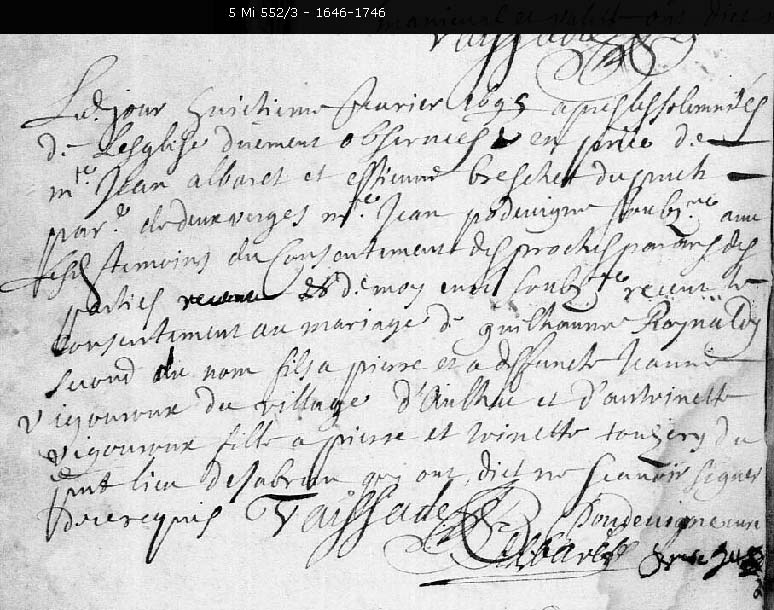 5 Mi 552/3 - 1646-1746
Vaissade
Led. jour huictieme feuvrier 1695 apres les solemnités
de Lesglise duement observees et en pnce de
mtre Jean albaret et estienne breschet du puech
par.e de deux verges mre Jean podevigne soubne. avec
lesd. temoins du Consentement des proches parans des
parties et de moy curé soubne receu le
consentement au mariage de guilhaume Raynaldy
second du nom fils a pierre et a deffuncte Jeanne
vigouroux du village d'Aulhac et d'antoinette
vigouroux fille a pierre et toinette toulzery du
pnt lieu de sabrem qui ont dict ne scavoir signer
de ce requis Vaissade Poudevigne curé
Albaret